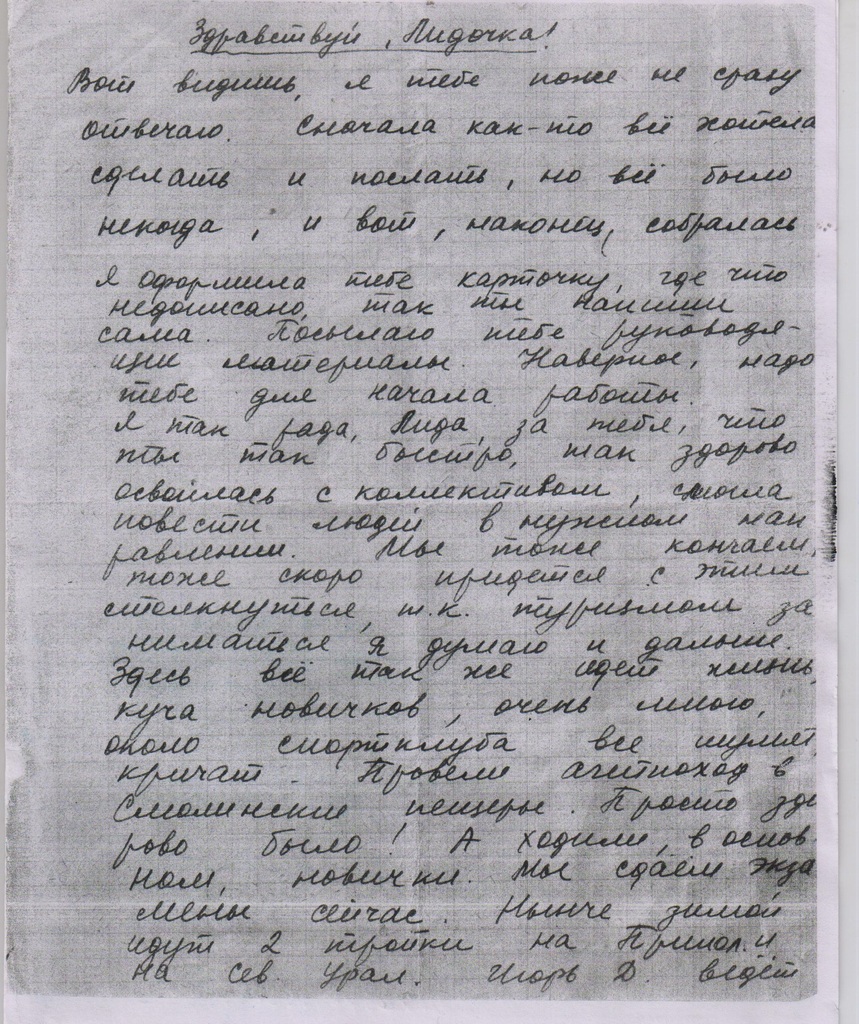 Здравствуй, Лидочка!
Вот видишь, я тебе тоже не сразу
отвечаю. Сначала как-то всё хотела
сделать и послать, но всё было
некогда, и вот, наконец, собралась
Я оформила тебе карточку, где что
недописано, так ты напиши
сама. Посылаю тебе руководя-
щие материалы. Наверное, надо
тебе для начала работы.
Я так рада, Лида, за тебя, что
ты так быстро, так здорово
освоилась с коллективом, смогла
повести людей в нужном нап
равлении. Мы тоже кончаем,
тоже скоро придется с этим
столкнуться, т.к. туризмом за
ниматься я думаю и дальше.
Здесь всё так же идет жизнь,
куча новичков, очень много,
около спортклуба все шумят,
кричат. Провели агитпоход в
Смолинские пещеры. Просто здо
рово было! А ходили, в основ
ном, новички. Мы сдаём экза
мены сейчас. Нынче зимой
идут 2 тройки на Припол. и
на Сев. Урал. Игорь Д. ведёт